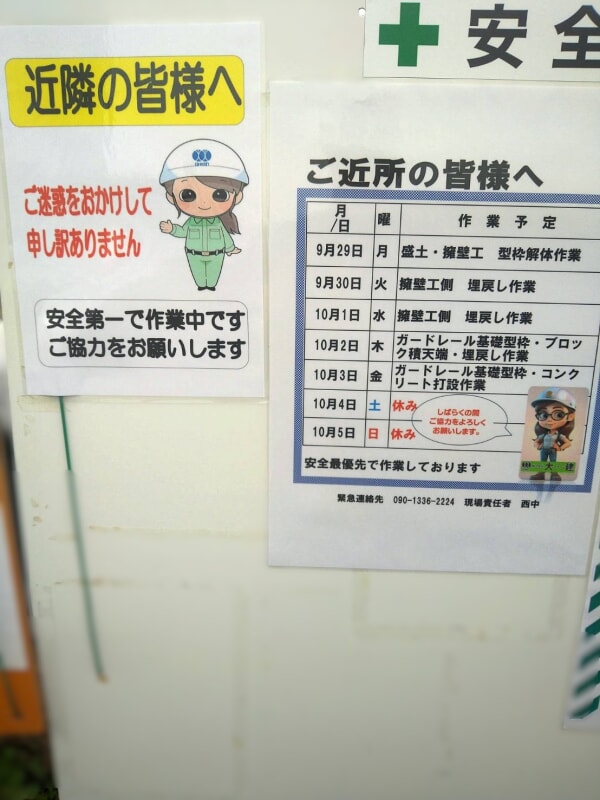 近隣の皆様へ
ご迷惑をおかけして
申し訳ありません
安全第一で作業中です
ご協力をお願いします
安全
ご近所の皆様へ
月/日 曜 作業予定
9月29日 月 盛土・擁壁工 型枠解体作業
9月30日 火 擁壁工側 埋戻し作業
10月1日 水 擁壁工側 埋戻し作業
10月2日 木 ガードレール基礎型枠・ブロッ
ク積天端・埋戻し作業
10月3日 金 ガードレール基礎型枠・コンク
リート打設作業
10月4日 土 休み
10月5日 日 休み
しばらくの間
ご協力をよろしく
お願いします。
大建
安全最優先で作業しております
緊急連絡先 090-1336-2224 現場責任者 西中